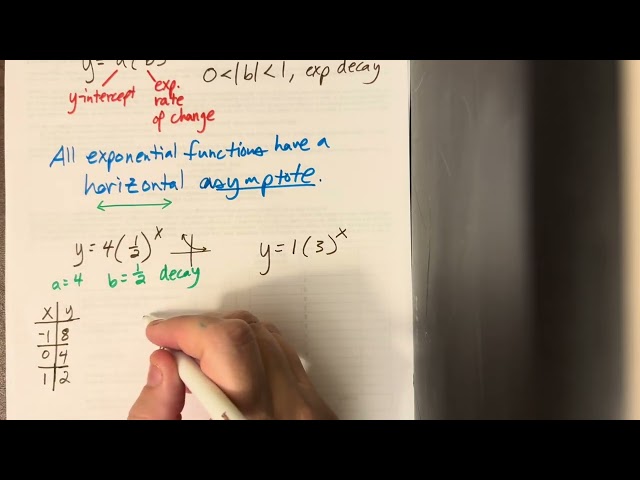 y = a(b)
0<|b|<1, exp decay
y-intercept
exp. rate of change
All exponential functions have a
horizontal asymptote.
y = 4(1/2)^x
y = 1(3)^x
a=4 b=1/2 decay
x y
-1 8
0 4
1 2